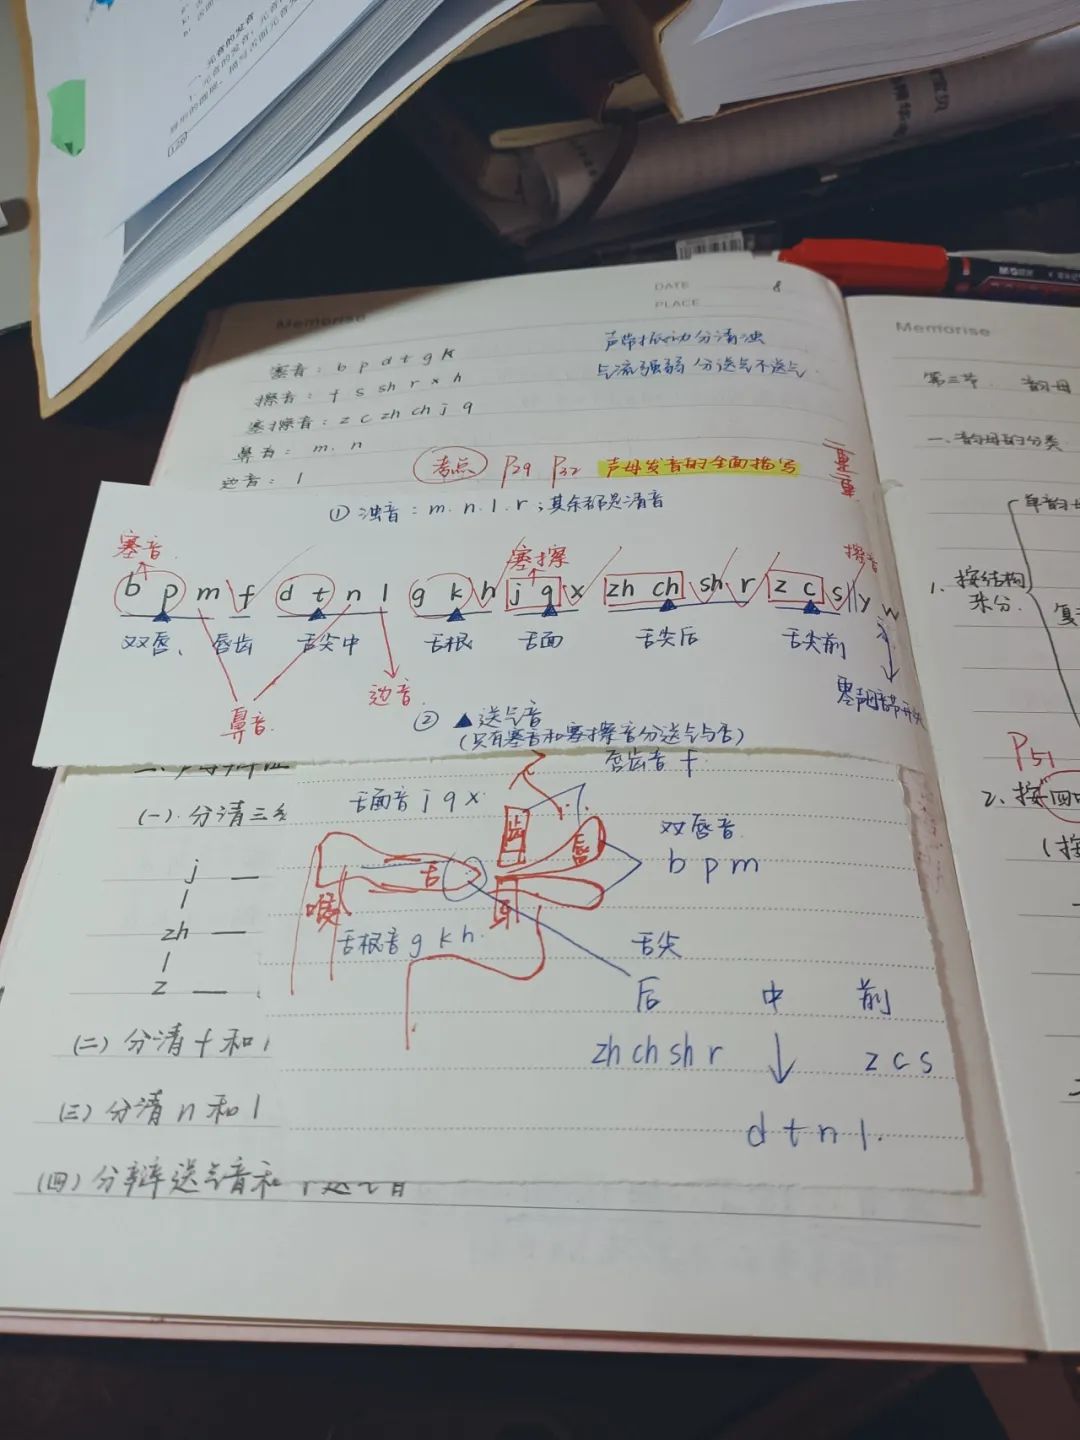 元音的发音
126
Memorise
DATE 8
PLACE
塞音：b p d t g k
擦音：f s sh r x h
塞擦音：z c zh ch j q
鼻音：m. n
边音：l
声带振动分清浊
气流强弱分送气不送气.
考点 P29 P32 声母发音的全面描写
重重
① 浊音：m. n. l. r；其余都是清音
塞音.
塞擦
擦音
b p m f d t n l g k h j q x zh ch sh r z c s y w
双唇、 唇齿 舌尖中 舌根 舌面 舌尖后 舌尖前
鼻音.
边音.
② ▲送气音
(只有塞音和塞擦音分送气与否)
(一). 分清三
j —
l
zh —
l
z —
(二) 分清 f 和
(三) 分清 n 和 l
(四) 分辨送气音和
唇齿音 f.
舌面音 j q x.
齿
唇
双唇音.
b p m
舌
喉
舌根音 g k h.
舌尖
后 中 前
zh ch sh r
z c s
d t n l.
Memorise
第三节. 韵母
一. 韵母的分类
单韵母
1. 按结构来分.
复
P51
2. 按四
(按
M&G